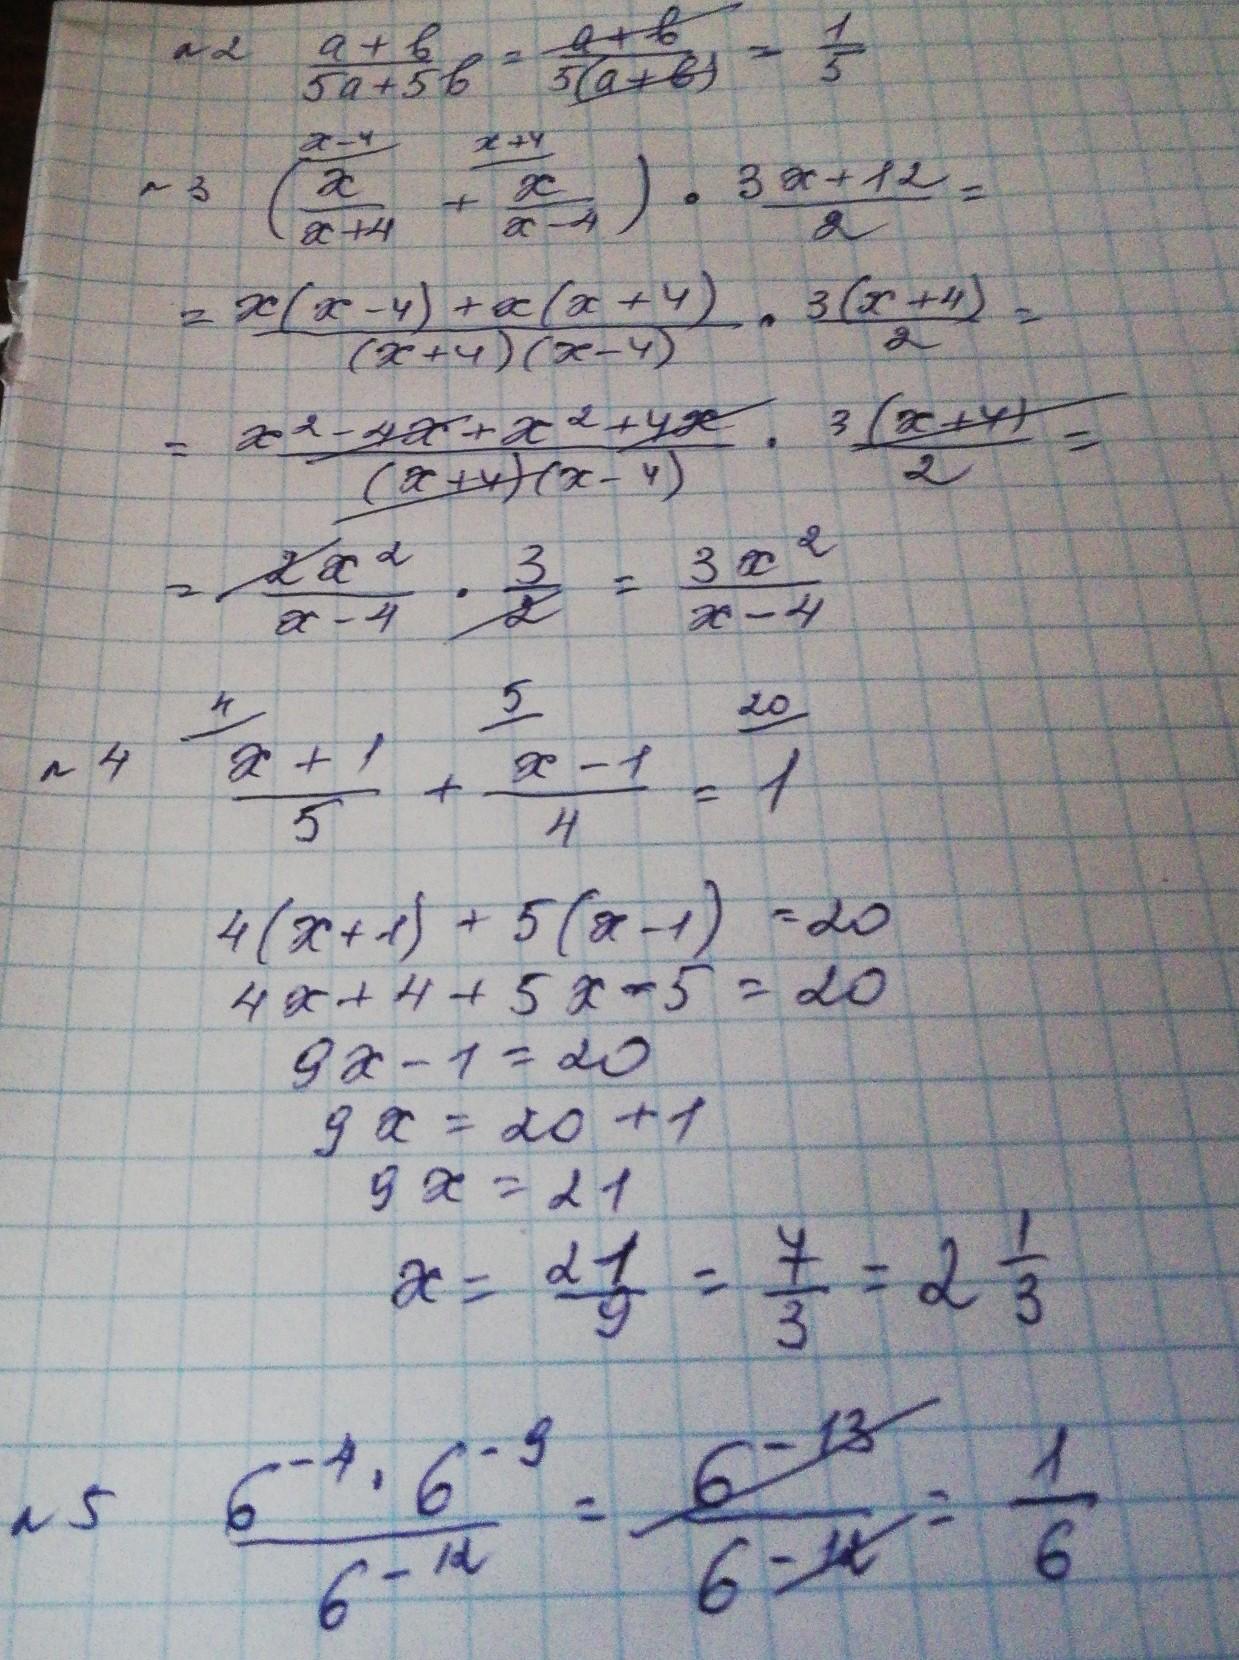 №2 (a+b)/(5a+5b) = (a+b)/(5(a+b)) = 1/5
x-4 x+4
№3 (x/(x+4) + x/(x-4)) · (3x+12)/2 =
= (x(x-4)+x(x+4))/((x+4)(x-4)) · 3(x+4)/2 =
= (x²-4x+x²+4x)/((x+4)(x-4)) · 3(x+4)/2 =
= 2x²/(x-4) · 3/2 = 3x²/(x-4)
4 5 20
№4 (x+1)/5 + (x-1)/4 = 1
4(x+1) + 5(x-1) = 20
4x+4+5x-5 = 20
9x-1 = 20
9x = 20+1
9x = 21
x = 21/9 = 7/3 = 2 1/3
№5 (6⁻⁴ · 6⁻⁹)/6⁻¹² = 6⁻¹³/6⁻¹² = 1/6